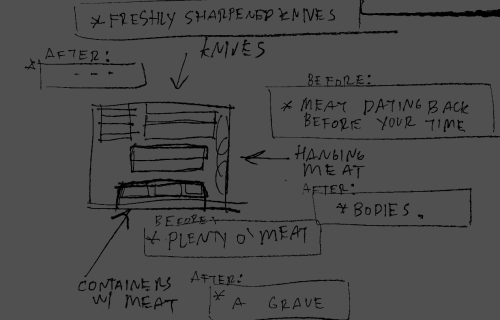 * FRESHLY SHARPENED KNIVES
KNIVES
AFTER:
* - - -
BEFORE:
* MEAT DATING BACK
BEFORE YOUR TIME
HANGING
MEAT
AFTER:
* BODIES.
BEFORE:
* PLENTY O' MEAT
CONTAINERS
W/ MEAT
AFTER:
* A GRAVE